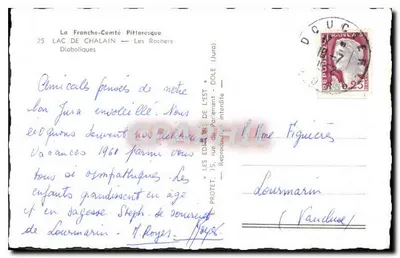 La Franche-Comté Pittoresque
25 LAC DE CHALAIN — Les Rochers
Diaboliques
Amicales pensées de notre
bon Jura ensoleillé. Nous
évoquons souvent nos
vacances 1961 parmi vous
tous si sympathiques. Les
enfants grandissent en âge
et en sagesse. Steph. se souvient
de Lourmarin. M. Royer
* LES EDITIONS DE L'EST *
PROTET, 15, rue de Parlement - DOLE (Jura)
Reproduction interdite
DOUC
0,25
Mme Figuières
Lourmarin
(Vaucluse)